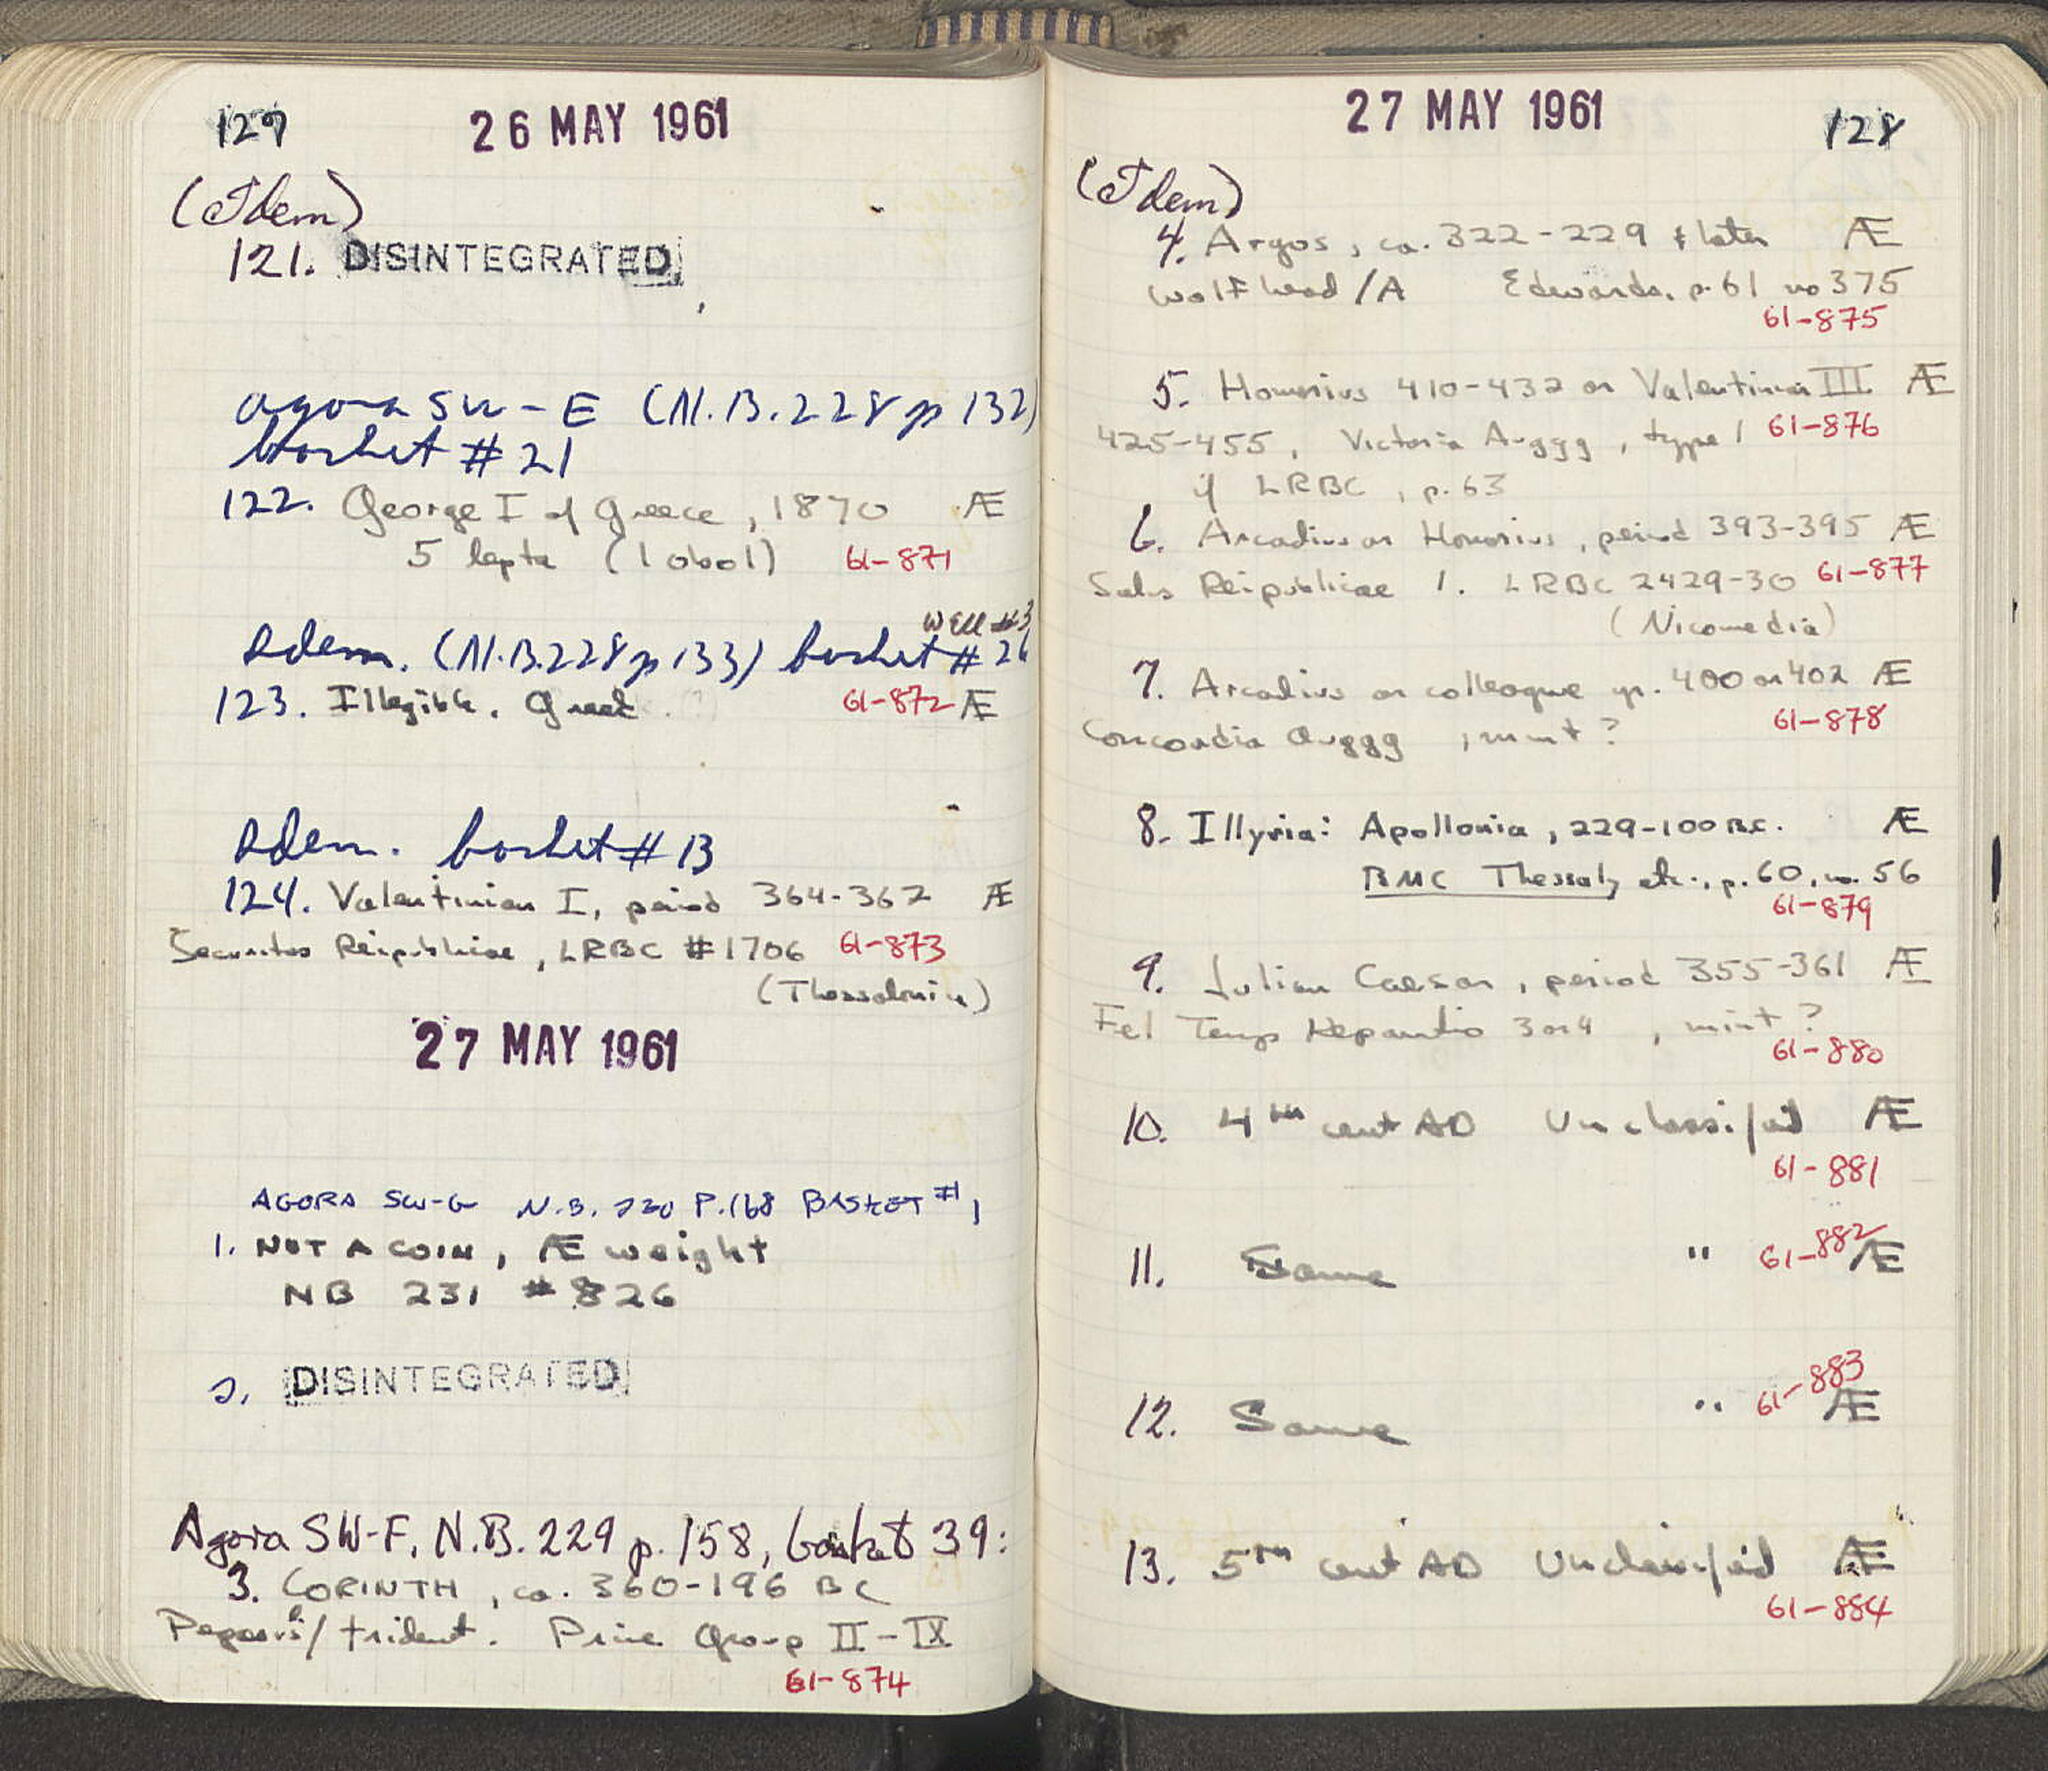 127
26 MAY 1961
(Idem)
121. DISINTEGRATED
Agora SW-E (N.B.228 p 132)
basket #21
122. George I of Greece, 1870 Æ
5 lepta (1 obol) 61-871
Well #3
Idem. (N.B.228 p 133) basket #26
123. Illegible. Greek 61-872 Æ
Idem. basket #13
124. Valentinian I, period 364-367 Æ
Securitas Reipublicae, LRBC #1706 61-873
(Thessalonica)
27 MAY 1961
AGORA SW-G N.B. 230 P.168 BASKET #1,
1. NOT A COIN, Æ weight
NB 231 #826
2. DISINTEGRATED
Agora SW-F, N.B. 229 p. 158, basket 39:
3. CORINTH, ca. 360-196 BC
Pegasus/trident. Price Group II-IX
61-874
27 MAY 1961
128
(Idem)
4. Argos, ca. 322-229 & later Æ
Wolf head/A Edwards, p. 61 no 375
61-875
5. Honorius 410-432 or Valentinian III Æ
425-455, Victoria Auggg, type 1 61-876
cf LRBC, p. 63
6. Arcadius or Honorius, period 393-395 Æ
Salus Reipublicae 1. LRBC 2429-30 61-877
(Nicomedia)
7. Arcadius or colleague yr. 400 or 402 Æ
Concordia Auggg, mint? 61-878
8. Illyria: Apollonia, 229-100 BC. Æ
BMC Thessaly etc., p. 60, no. 56
61-879
9. Julian Caesar, period 355-361 Æ
Fel Temp Reparatio 3 or 4, mint?
61-880
10. 4th cent AD Unclassified Æ
61-881
11. Same " 61-882 Æ
12. Same " 61-883 Æ
13. 5th cent AD Unclassified Æ
61-884